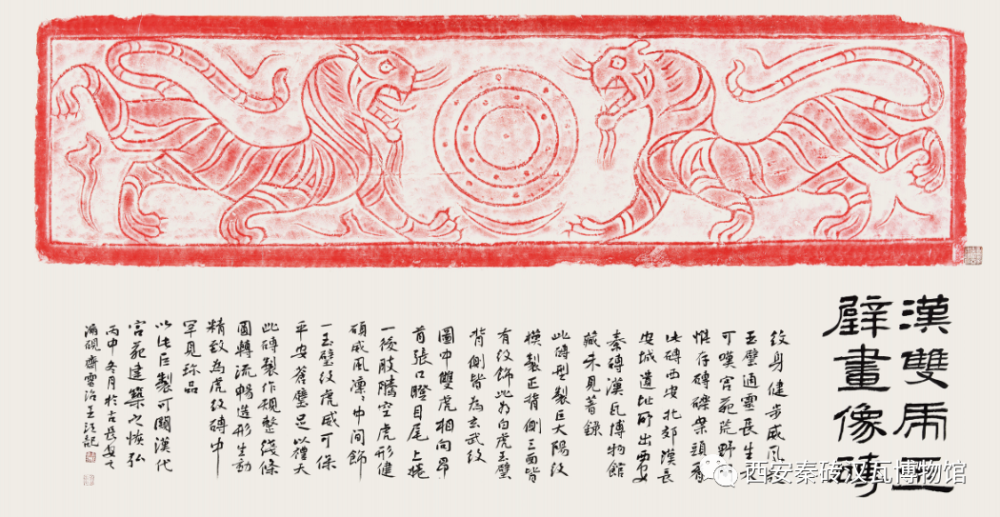 漢雙虎玉
璧畫像磚
紋身健步威風
玉璧通靈長生
可嘆宮苑荒野
惟存磚礫案頭看
此磚西安北郊漢長
安城遺址所出西安
秦磚漢瓦博物館
藏未見著錄
此磚型製巨大陽紋
模製正背側三面皆
有紋飾此為白虎玉璧
背側皆為玄武紋
圖中雙虎相向昂
首張口瞪目尾上捲
一後肢騰空虎形健
碩威風凜凜中間飾
一玉璧紋虎威可保
平安蒼璧足以禮天
此磚製作規整線條
圓轉流暢造形生動
精致為虎紋磚中
罕見珍品
以此巨製可闚漢代
宮苑建築之恢弘
丙申冬月於古長安之
硯齋雲治王記
西安秦砖汉瓦博物馆